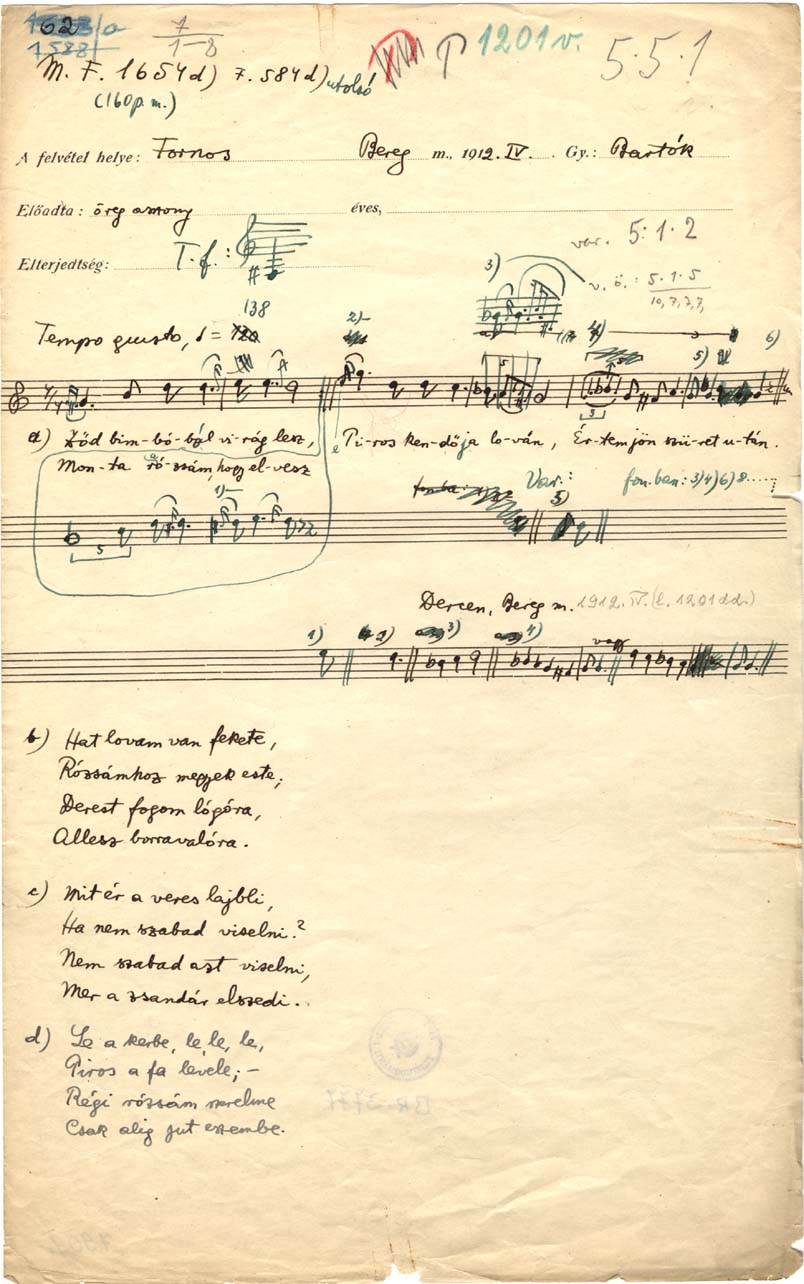 62
1588/
7
1–8
P 1201 v.
5.5.1
M. F. 1654d) 7. 584d) utolsó
(160 p. m.)
A felvétel helye: Fornos Bereg m., 1912. IV. Gy.: Bartók
Előadta: öreg asszony éves,
var. 5.1.2
Elterjedtség: T. f.:
v. ö.: 5.1.5
10, 7, 7, 7,
3)
138
Tempo giusto, =
2)
4)
5)
6)
5
3
a) Zöd bim-bó-ból vi-rág lesz, Pi-ros ken-dője lo-ván, Ér-tem jön szü-ret u-tán.
Mon-ta ró-zsám, hogy el-vesz
Var.: fon.ban: 3) 4) 6) 8......;
1)
5
5)
Dercen, Bereg m. 1912. IV. (l. 1201dd.)
1) 2) 3) 4) vagy
b) Hat lovam van fekete,
Rózsámhoz megyek este;
Derest fogom lógóra,
Allesz borravalóra.
c) Mit ér a veres lajbli,
Ha nem szabad viselni?
Nem szabad azt viselni,
Mer a zsandár elszedi.
d) Le a kerbe, le, le, le,
Piros a fa levele; –
Régi rózsám szerelme
Csak alig jut eszembe.